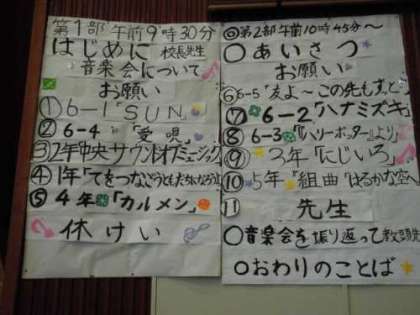 第1部 午前9時30分
はじめに 校長先生
音楽会について
お願い
① 6-1「SUN」
② 6-4「愛唄」
③ 2年中央サウンドオブミュージック
④ 1年「てをつなごう ともだちになろう」
⑤ 4年「カルメン」
休けい
◎第2部 午前10時45分〜
○あいさつ
お願い
⑥ 6-5「友よ〜この先もずっと
⑦ 6-2「ハナミズキ」
⑧ 6-3「ハリーポッターより」
⑨ 3年「にじいろ」
⑩ 5年「組曲 はるかな空へ
⑪ 先生
○音楽会を振り返って 教頭先
○おわりのことば